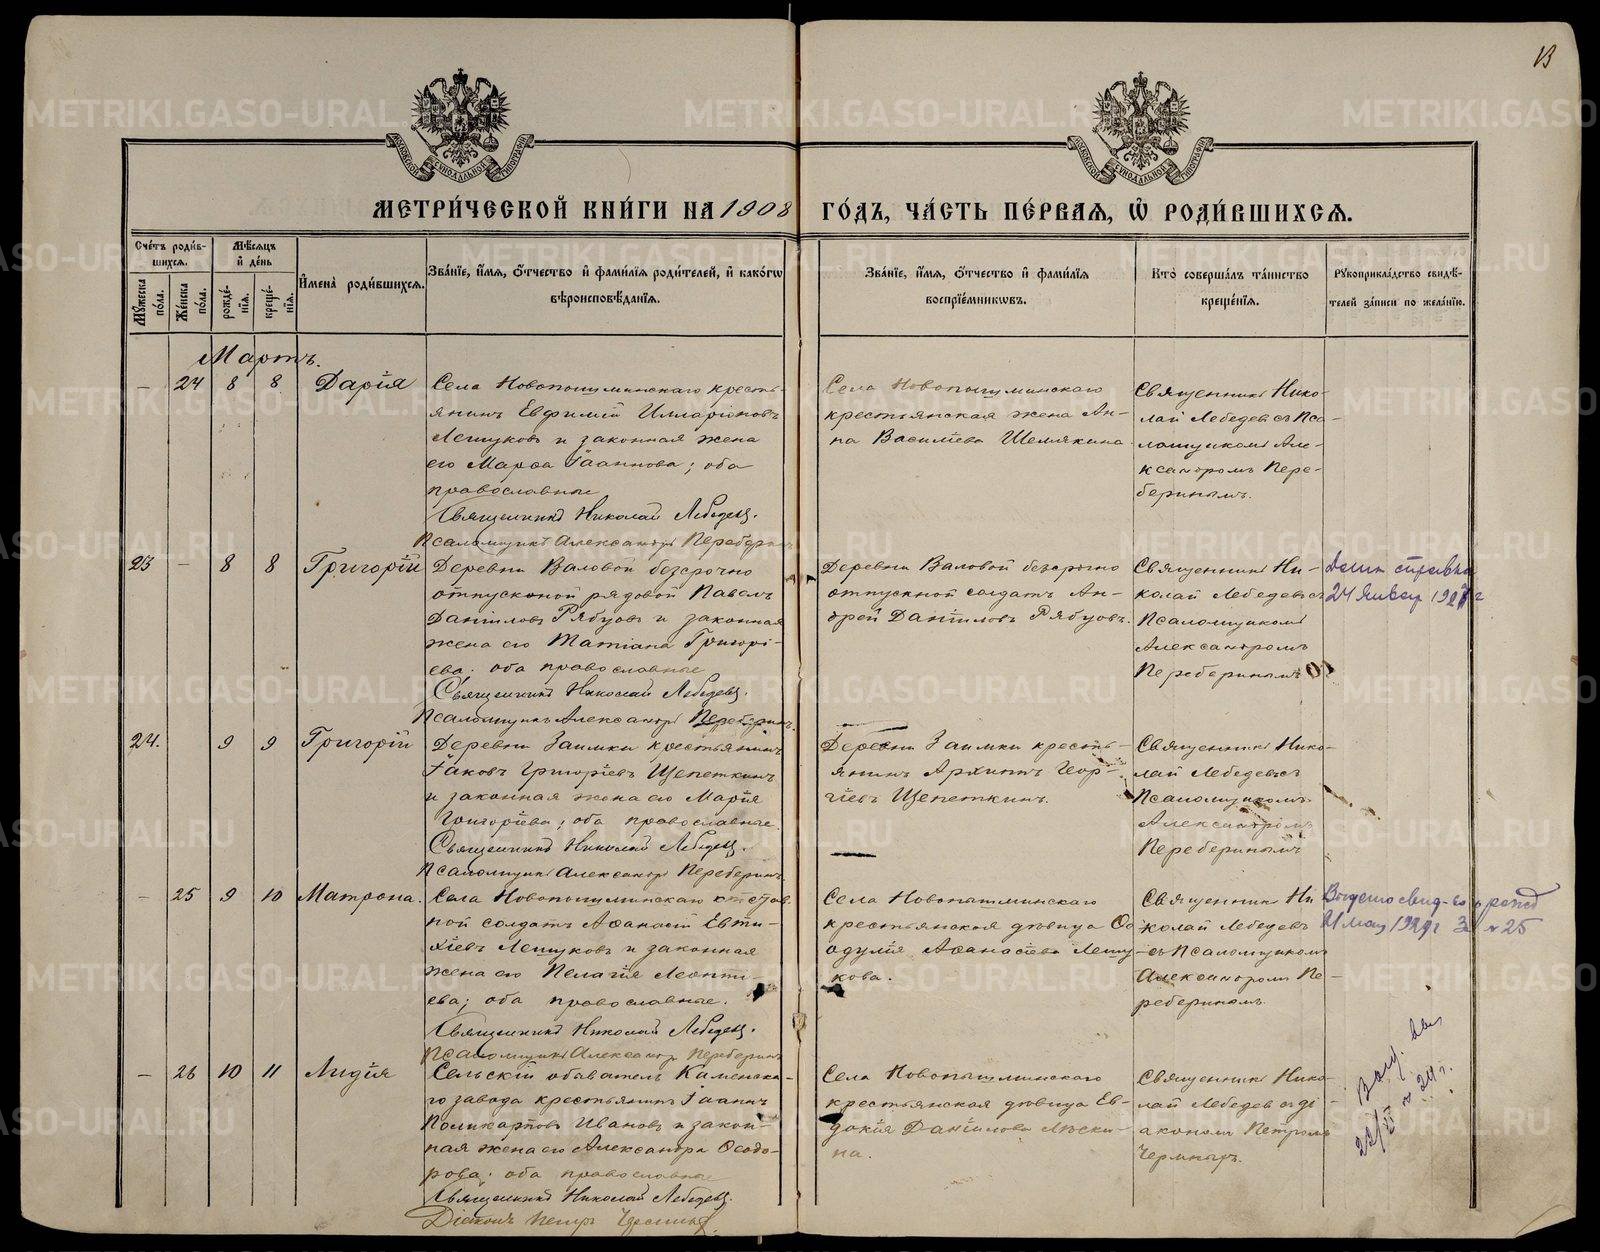 13
МОСКОВСКОЙ СѴНОДАЛЬНОЙ ТИПОГРАФІИ
МОСКОВСКОЙ СѴНОДАЛЬНОЙ ТИПОГРАФІИ
МЕТРИ́ЧЕСКОЙ КНИ́ГИ НА 1908 ГО́ДЪ, ЧА́СТЬ ПЕ́РВАЯ, Ѽ РОДИ́ВШИХСЯ.
Сче́тъ роди́в-
шихся.
Мѣ́сяцъ
и҆ де́нь
Му́жеска по́ла.
Же́нска по́ла.
рожде́-
нїѧ.
креще́-
нїѧ.
И҆мена̀ роди́вшихся.
Зва́нїе, и҆́мѧ, ѻ҆́тчество и҆ фами́лїѧ роди́телей, и҆ како́гѡ
вѣроисповѣ́данїѧ.
Зва́нїе, и҆́мѧ, ѻ҆́тчество и҆ фами́лїѧ
воспрїе́мникѡвъ.
Кто̀ соверша́лъ та́инство
креще́нїѧ.
Рꙋкоприкла́дство свидѣ́-
телей за́писи по жела́нїю.
Мартъ.
— 24 8 8 Дарія
Села Новопышминскаго кресть-
янинъ Евфимій Илларіоновъ
Лешуковъ и законная жена
его Марѳа Іоаннова; оба
православные
Священникъ Николай Лебедевъ.
Псаломщикъ Александръ Переберинъ
Села Новопышминскаго
крестьянская жена Ан-
на Василіева Шемякина
Священникъ Нико-
лай Лебедевъ съ Пса-
ломщикомъ Але-
ксандромъ Пере-
беринымъ.
23 — 8 8 Григорій
Деревни Валовой безсрочно
отпускной рядовой Павелъ
Даніиловъ Рябуовъ и законная
жена его Татіана Григорі-
ева; оба православные
Священникъ Николай Лебедевъ.
Псаломщикъ Александръ Переберинъ.
Деревни Валовой безсрочно
отпускной солдатъ Ан-
дрей Даніиловъ Рябуовъ.
Священникъ Ни-
колай Лебедевъ съ
Псаломщикомъ
Александромъ
Переберинымъ
24 Январ
24. 9 9 Григорій
Деревни Заимки крестьянинъ
Іаковъ Григоріевъ Щепеткинъ
и законная жена его Марія
Григоріева; оба православные.
Священникъ Николай Лебедевъ.
Псаломщикъ Александръ Переберинъ.
Деревни Заимки кресть-
янинъ Архиппъ Геор-
гіевъ Щепеткинъ.
Священникъ Нико-
лай Лебедевъ съ
Псаломщикомъ
Александромъ
Переберинымъ
— 25 9 10 Матрона.
Села Новопышминскаго отстав-
ной солдатъ Аѳанасій Евти-
хіевъ Лешуковъ и законная
жена его Пелагія Леонті-
ева; оба православные.
Священникъ Николай Лебедевъ.
Псаломщикъ Александръ Переберинъ
Села Новопышминскаго
крестьянская дѣвица Ѳе
одулія Аѳанасіева Лешу-
кова.
Священникъ Ни
колай Лебедевъ
съ Псаломщикомъ
Александромъ Пе-
реберинымъ.
21 мая 1929 г. № 25
— 26 10 11 Лидія
Сельскій обыватель Каменска-
го завода крестьянинъ Іоаннъ
Поликарповъ Ивановъ и закон-
ная жена его Александра Ѳеодо-
рова; оба православные
Священникъ Николай Лебедевъ.
Діаконъ Петръ Черемныхъ
Села Новопышминскаго
крестьянская дѣвица Ев-
докія Даніилова Лѣски-
на.
Священникъ Нико-
лай Лебедевъ съ ді-
акономъ Петромъ
Черемныхъ.